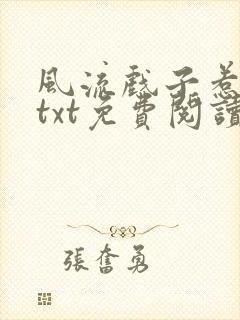 風流戲子惹
txt免費閱讀
張奮勇